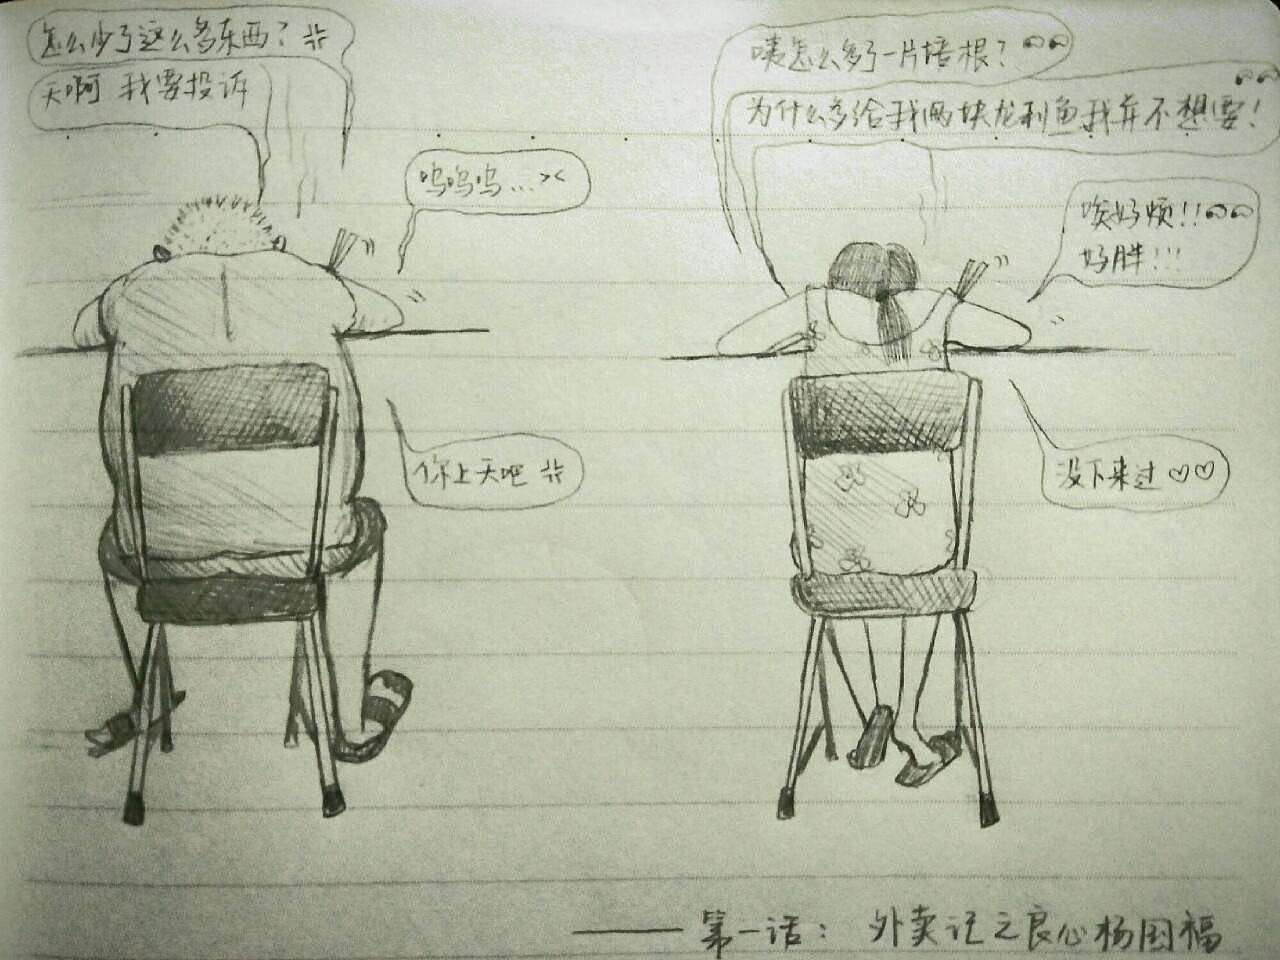 怎么少了这么多东西？
天啊 我要投诉
呜呜呜...><
你上天吧
咦怎么多了一片培根？
为什么多给我两块龙利鱼我并不想要！
唉好烦！！
好胖！！！
没下来过♡♡
——第一话：外卖记之良心杨国福